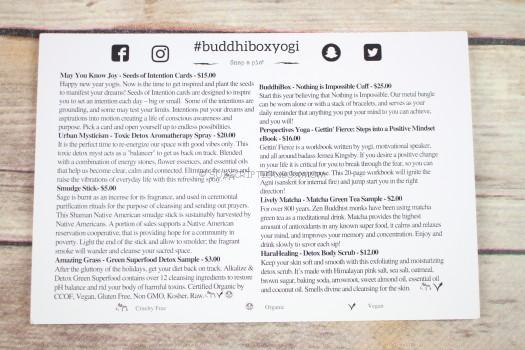 #buddhiboxyogi
Snap a pic!
May You Know Joy - Seeds of Intention Cards - $15.00
Happy new year yogis. Now is the time to get inspired and plant the seeds
to manifest your dreams! Seeds of Intention cards are designed to inspire
you to set an intention each day – big or small. Some of the intentions are
grounding, and some may test your limits. Intentions put your dreams and
aspirations into motion creating a life of conscious awareness and
purpose. Pick a card and open yourself up to endless possibilities.
Urban Mysticism - Toxic Detox Aromatherapy Spray - $20.00
It is the perfect time to re-energize our space with good vibes only. This
toxic detox myst acts as a "balancer" to get us back on track. Blended
with a combination of energy stones, flower essences, and essential oils
that help us become clear, calm and connected. Eliminate the toxins and
raise the vibrations of everyday life with this refreshing spray.
Smudge Stick- $5.00
Sage is burnt as an incense for its fragrance, and used in ceremonial
purification rituals for the purpose of cleansing and sending out prayers.
This Shaman Native American smudge stick is sustainably harvested by
Native Americans. A portion of sales supports a Native American
reservation cooperative, that is providing hope for a community in
poverty. Light the end of the stick and allow to smolder; the fragrant
smoke will wander and cleanse your sacred space.
Amazing Grass - Green Superfood Detox Sample - $3.00
After the gluttony of the holidays, get your diet back on track. Alkalize &
Detox Green Superfood contains over 12 cleansing ingredients to restore
pH balance and rid your body of harmful toxins. Certified Organic by
CCOF, Vegan, Gluten Free, Non GMO, Kosher, Raw.
BuddhiBox - Nothing is Impossible Cuff - $25.00
Start this year believing that Nothing is Impossible. Our metal bangle
can be worn alone or with a stack of bracelets, and serves as your
daily reminder that anything you put your mind to you can achieve,
and you will!
Perspectives Yoga - Gettin' Fierce: Steps into a Positive Mindset
eBook - $16.00
Gettin' Fierce is a workbook written by yogi, motivational speaker,
and all around badass Jenea Kingsby. If you desire a positive change
in your life it is critical for you to break through the fear, so you can
purpose. This 20-page workbook will ignite the
Agni (sanskrit for internal fire) and jump start you in the right
direction!
Lively Matcha - Matcha Green Tea Sample - $2.00
For over 800 years, Zen Buddhist monks have been using matcha
green tea as a meditational drink. Matcha provides the highest
amount of antioxidants in any known super food, it calms and relaxes
your mind, and improves your memory and concentration. Enjoy and
drink slowly to savor each sip!
HaraHealing - Detox Body Scrub - $12.00
Keep your skin soft and smooth with this exfoliating and moisturizing
detox scrub. It's made with Himalayan pink salt, sea salt, oatmeal,
brown sugar, baking soda, arrowroot, sweet almond oil, essential oil
and coconut oil. Smells divine and cleansing for the skin.
Cruelty Free
Organic
Vegan